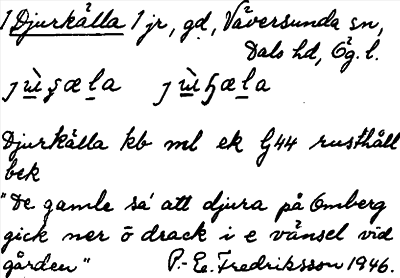 1 Djurkälla 1 jr, gd, Väversunda sn,
Dals hd, Ög. l.
Djurkälla kb ml ek G44 rusthåll
bek
"De gamle sa' att djura på Omberg
gick ner ö drack i e vänsel vid
gården" P.-E. Fredriksson 1946.